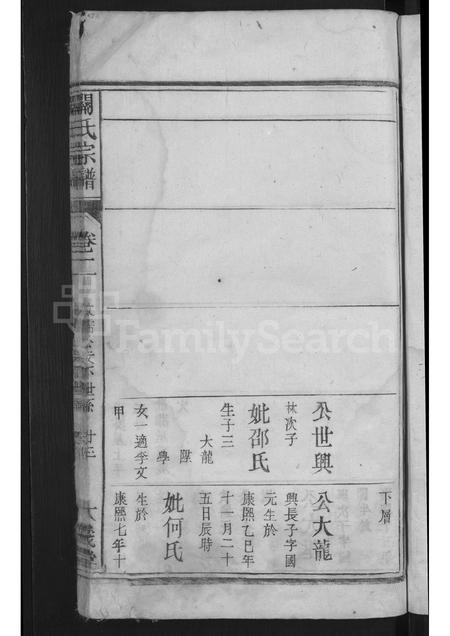 下層
公世興
林次子
妣邵氏
生子三
大龍
陞
學
女一適李文
甲
公大龍
興長子字國
元生於
康熙乙巳年
十一月二十
五日辰時
妣何氏
生於
康熙七年十
關氏宗譜
卷二
FamilySearch